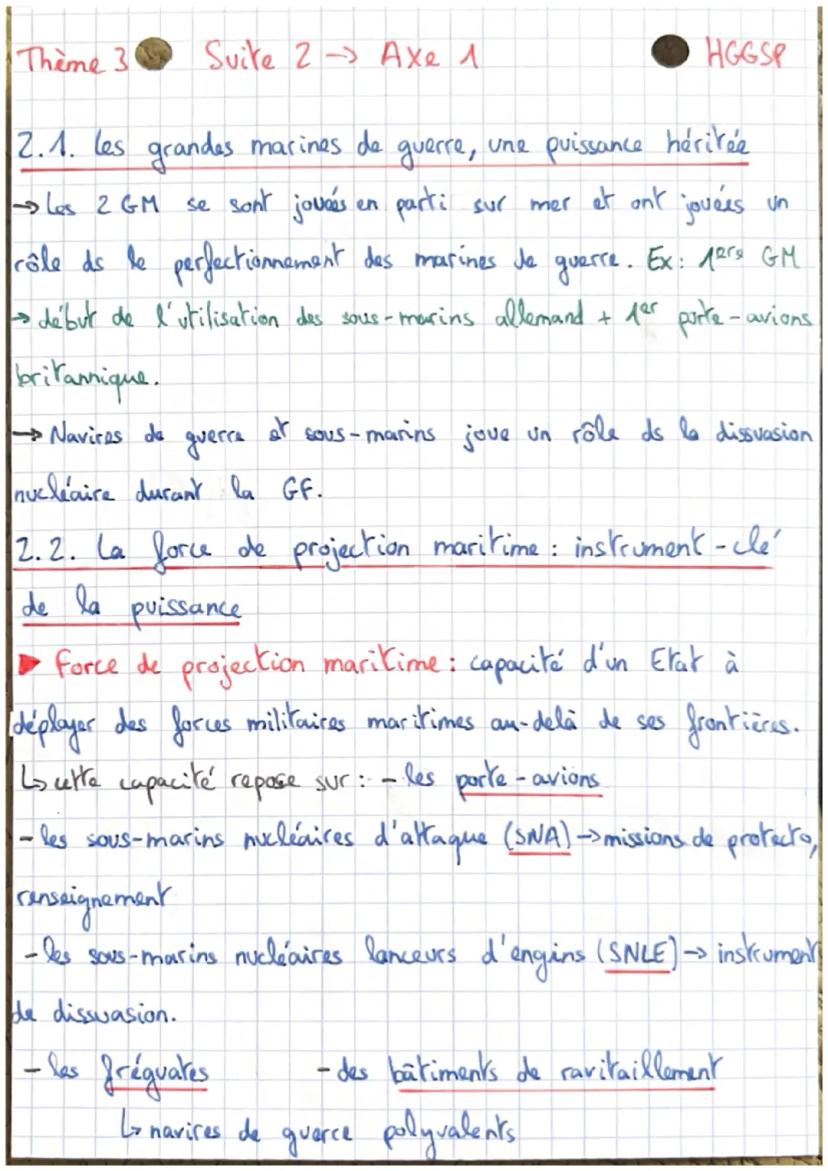 Thème 3 Suite 2 → Axe 1 HGGSP
2.1. Les grandes marines de guerre, une puissance héritée
→ Les 2 GM se sont jouées en parti sur mer et ont jouées un
rôle ds le perfectionnement des marines de guerre. Ex: 1ere GM
→ début de l'utilisation des sous-marins allemand + 1er porte-avions
britannique.
→ Navires de guerre et sous-marins joue un rôle ds la dissuasion
nucléaire durant la GF.
2.2. La force de projection maritime : instrument-clé
de la puissance
▶ Force de projection maritime : capacité d'un Etat à
déployer des forces militaires maritimes au-delà de ses frontières.
↳ cette capacité repose sur : - les porte-avions
- les sous-marins nucléaires d'attaque (SNA) → missions de protecto,
renseignement
- les sous-marins nucléaires lanceurs d'engins (SNLE) → instrument
de dissuasion.
- les fréguates - des bâtiments de ravitaillement
↳ navires de guerre polyvalents